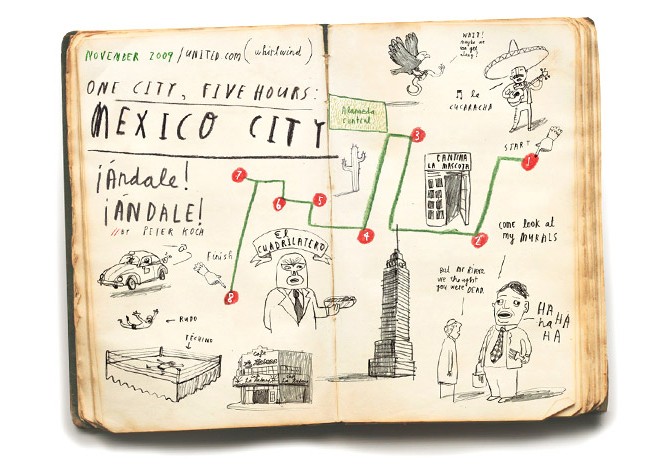 NOVEMBER 2009/UNITED.COM (whirlwind)
ONE CITY, FIVE HOURS:
MEXICO CITY
¡Ándale!
¡ÁNDALE!
//BY PETER KOCH
Finish
7
6
5
8
El
CUADRILATERO
← RUDO
TÉCNICO
Cafe
WAIT!
maybe we
can get
along?
♫ la
CUCARACHA
central
3
START
1
CANTINA
LA MASCOTA
4
2
COME LOOK AT
my MURALS
But MR RIVERA
we thought
you were DEAD
HA
HA HA
HA